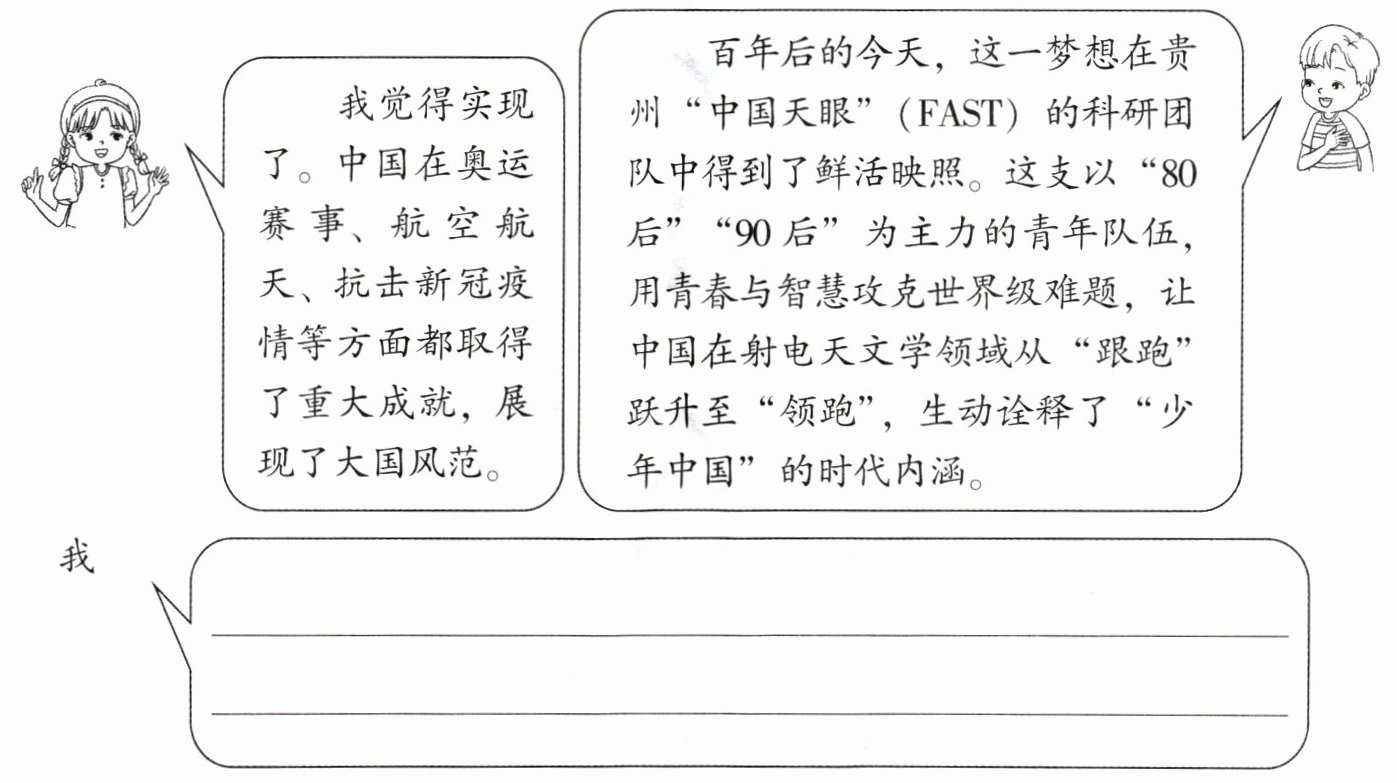 我觉得实现
了。中国在奥运
赛事、航空航
天、抗击新冠疫
情等方面都取得
了重大成就，展
现了大国风范。
百年后的今天，这一梦想在贵
州“中国天眼”（FAST）的科研团
队中得到了鲜活映照。这支以“80
后”“90后”为主力的青年队伍，
用青春与智慧攻克世界级难题，让
中国在射电天文学领域从“跟跑”
跃升至“领跑”，生动诠释了“少
年中国”的时代内涵。
我